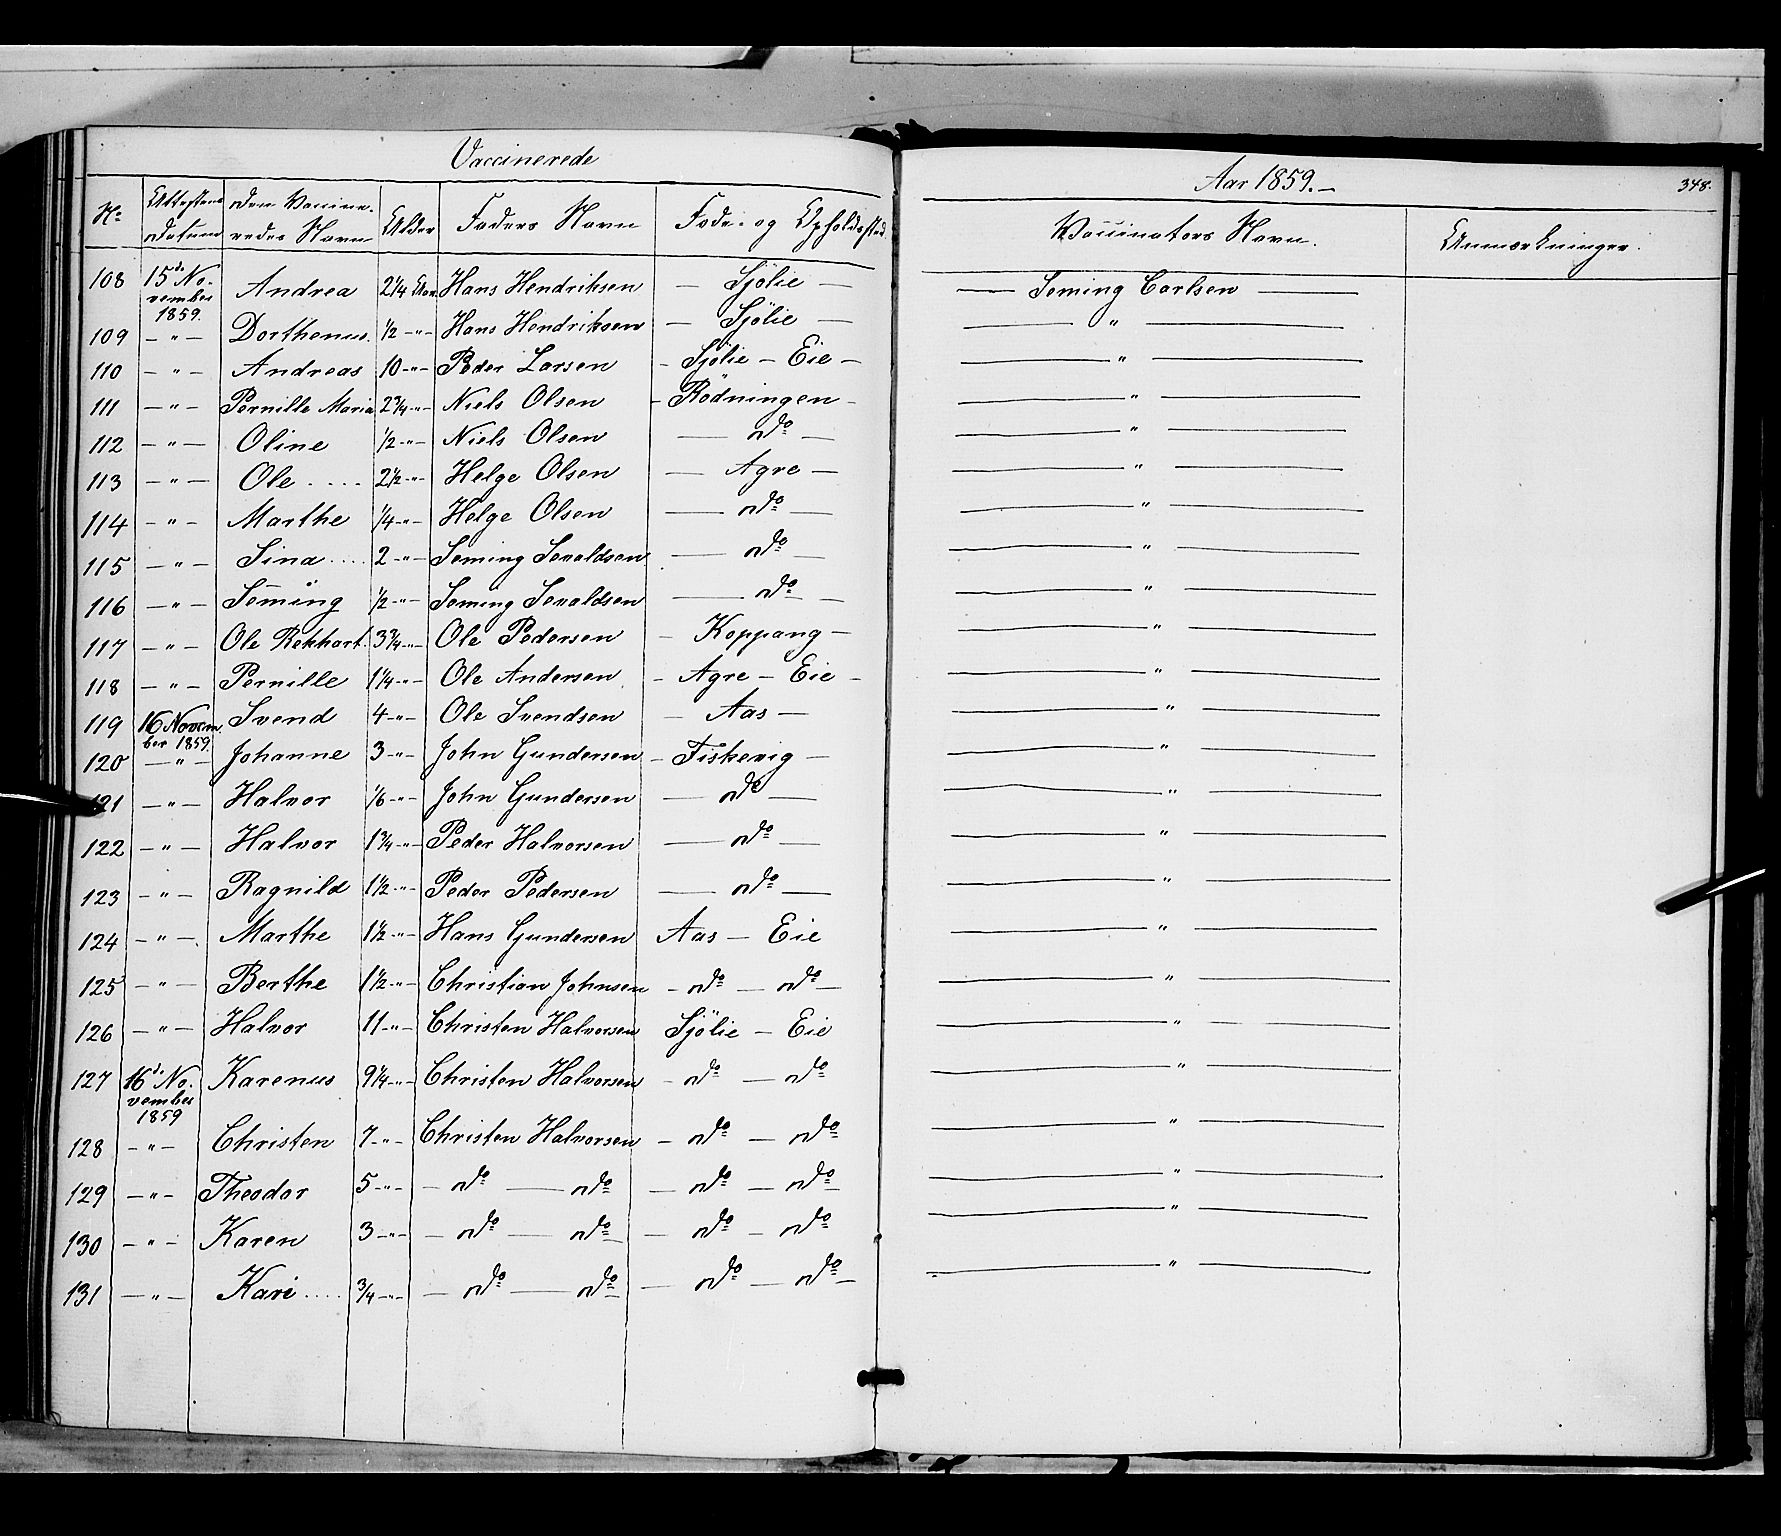 Vaccinerede
Aar 1859.—
348.
No | Attestens Datum | Den Vaccineredes Navn | Alder | Faders Navn | Føde- og Opholdssted | Vaccinators Navn. | Anmærkninger.
108 | 15de November 1859. | Andrea | 2 1/4 Aar | Hans Hendriksen | — Sjölie — | — Seming Carlsen —
109 | — " — | Dorthenus. | 1/2 - " - | Hans Hendriksen | — Sjölie — | — " —
110 | — " — | Andreas | 10 - " - | Peder Larsen | - Sjölie — Eie — | — " —
111 | — " — | Pernille Maria | 2 3/4 - " - | Niels Olsen | - Rödningen - | — " —
112 | — " — | Oline | 1/2 - " - | Niels Olsen | — do — | — " —
113 | — " — | Ole .... | 2 1/2 - " - | Helge Olsen | — Agre — | — " —
114 | — " — | Marthe | 1/4 - " - | Helge Olsen | — do — | — " —
115 | — " — | Sina .... | 2 - " - | Seming Sevaldsen | — do — | — " —
116 | — " — | Seming | 1/2 - " - | Seming Sevaldsen | — do — | — " —
117 | — " — | Ole Rekhart. | 3 3/4 - " - | Ole Pedersen | — Koppang — | — " —
118 | — " — | Pernille | 1 1/4 - " - | Ole Andersen | - Agre — Eie - | — " —
119 | 16 November 1859. | Svend | 4 - " - | Ole Svendsen | — Aas — | — " —
120 | — " — | Johanne | 3 - " - | John Gundersen | - Fiskevig — | — " —
121 | — " — | Halvor | 1/6 - " - | John Gundersen | — do — | — " —
122 | — " — | Halvor | 1 3/4 - " - | Peder Halvorsen | — do — | — " —
123 | — " — | Ragnild | 1 1/2 - " - | Peder Pedersen | — do — | — " —
124 | — " — | Marthe | 1 1/2 - " - | Hans Gundersen | Aas — Eie | — " —
125 | — " — | Berthe | 1 1/2 - " - | Christian Johnsen | - do — do — | — " —
126 | — " — | Halvor | 11 - " - | Christen Halvorsen | Sjölie — Eie | — " —
127 | 16de November 1859 | Karenus | 9 1/4 - " - | Christen Halvorsen | - do — do | — " —
128 | — " — | Christen | 7 - " - | Christen Halvorsen | — do — do | — " —
129 | — " — | Theodor | 5 - " - | — do — do | — do — do | — " —
130 | — " — | Karen | 3 - " - | — do — do | — do — do | — " —
131 | — " — | Kari .... | 3/4 - " - | — do — do | — do — do — | — " —